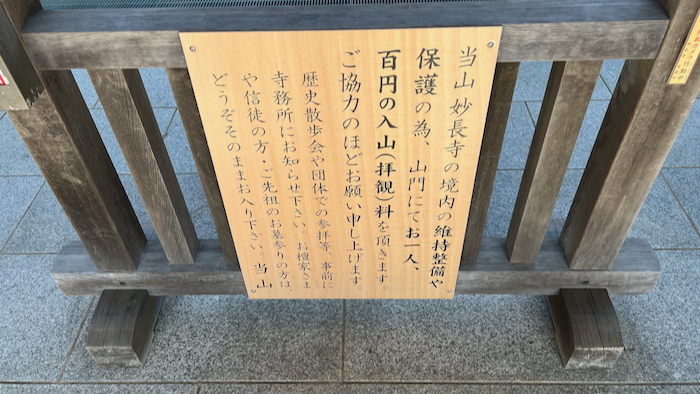 当山 妙長寺の境内の維持整備や
保護の為、山門にてお一人、
百円の入山(拝観)料を頂きます。
ご協力のほどお願い申し上げます
歴史散歩会や団体での参拝等、事前に
寺務所にお知らせ下さい。お檀家さま
や信徒の方・ご先祖のお墓参りの方は、
どうぞそのままお入り下さい 当山